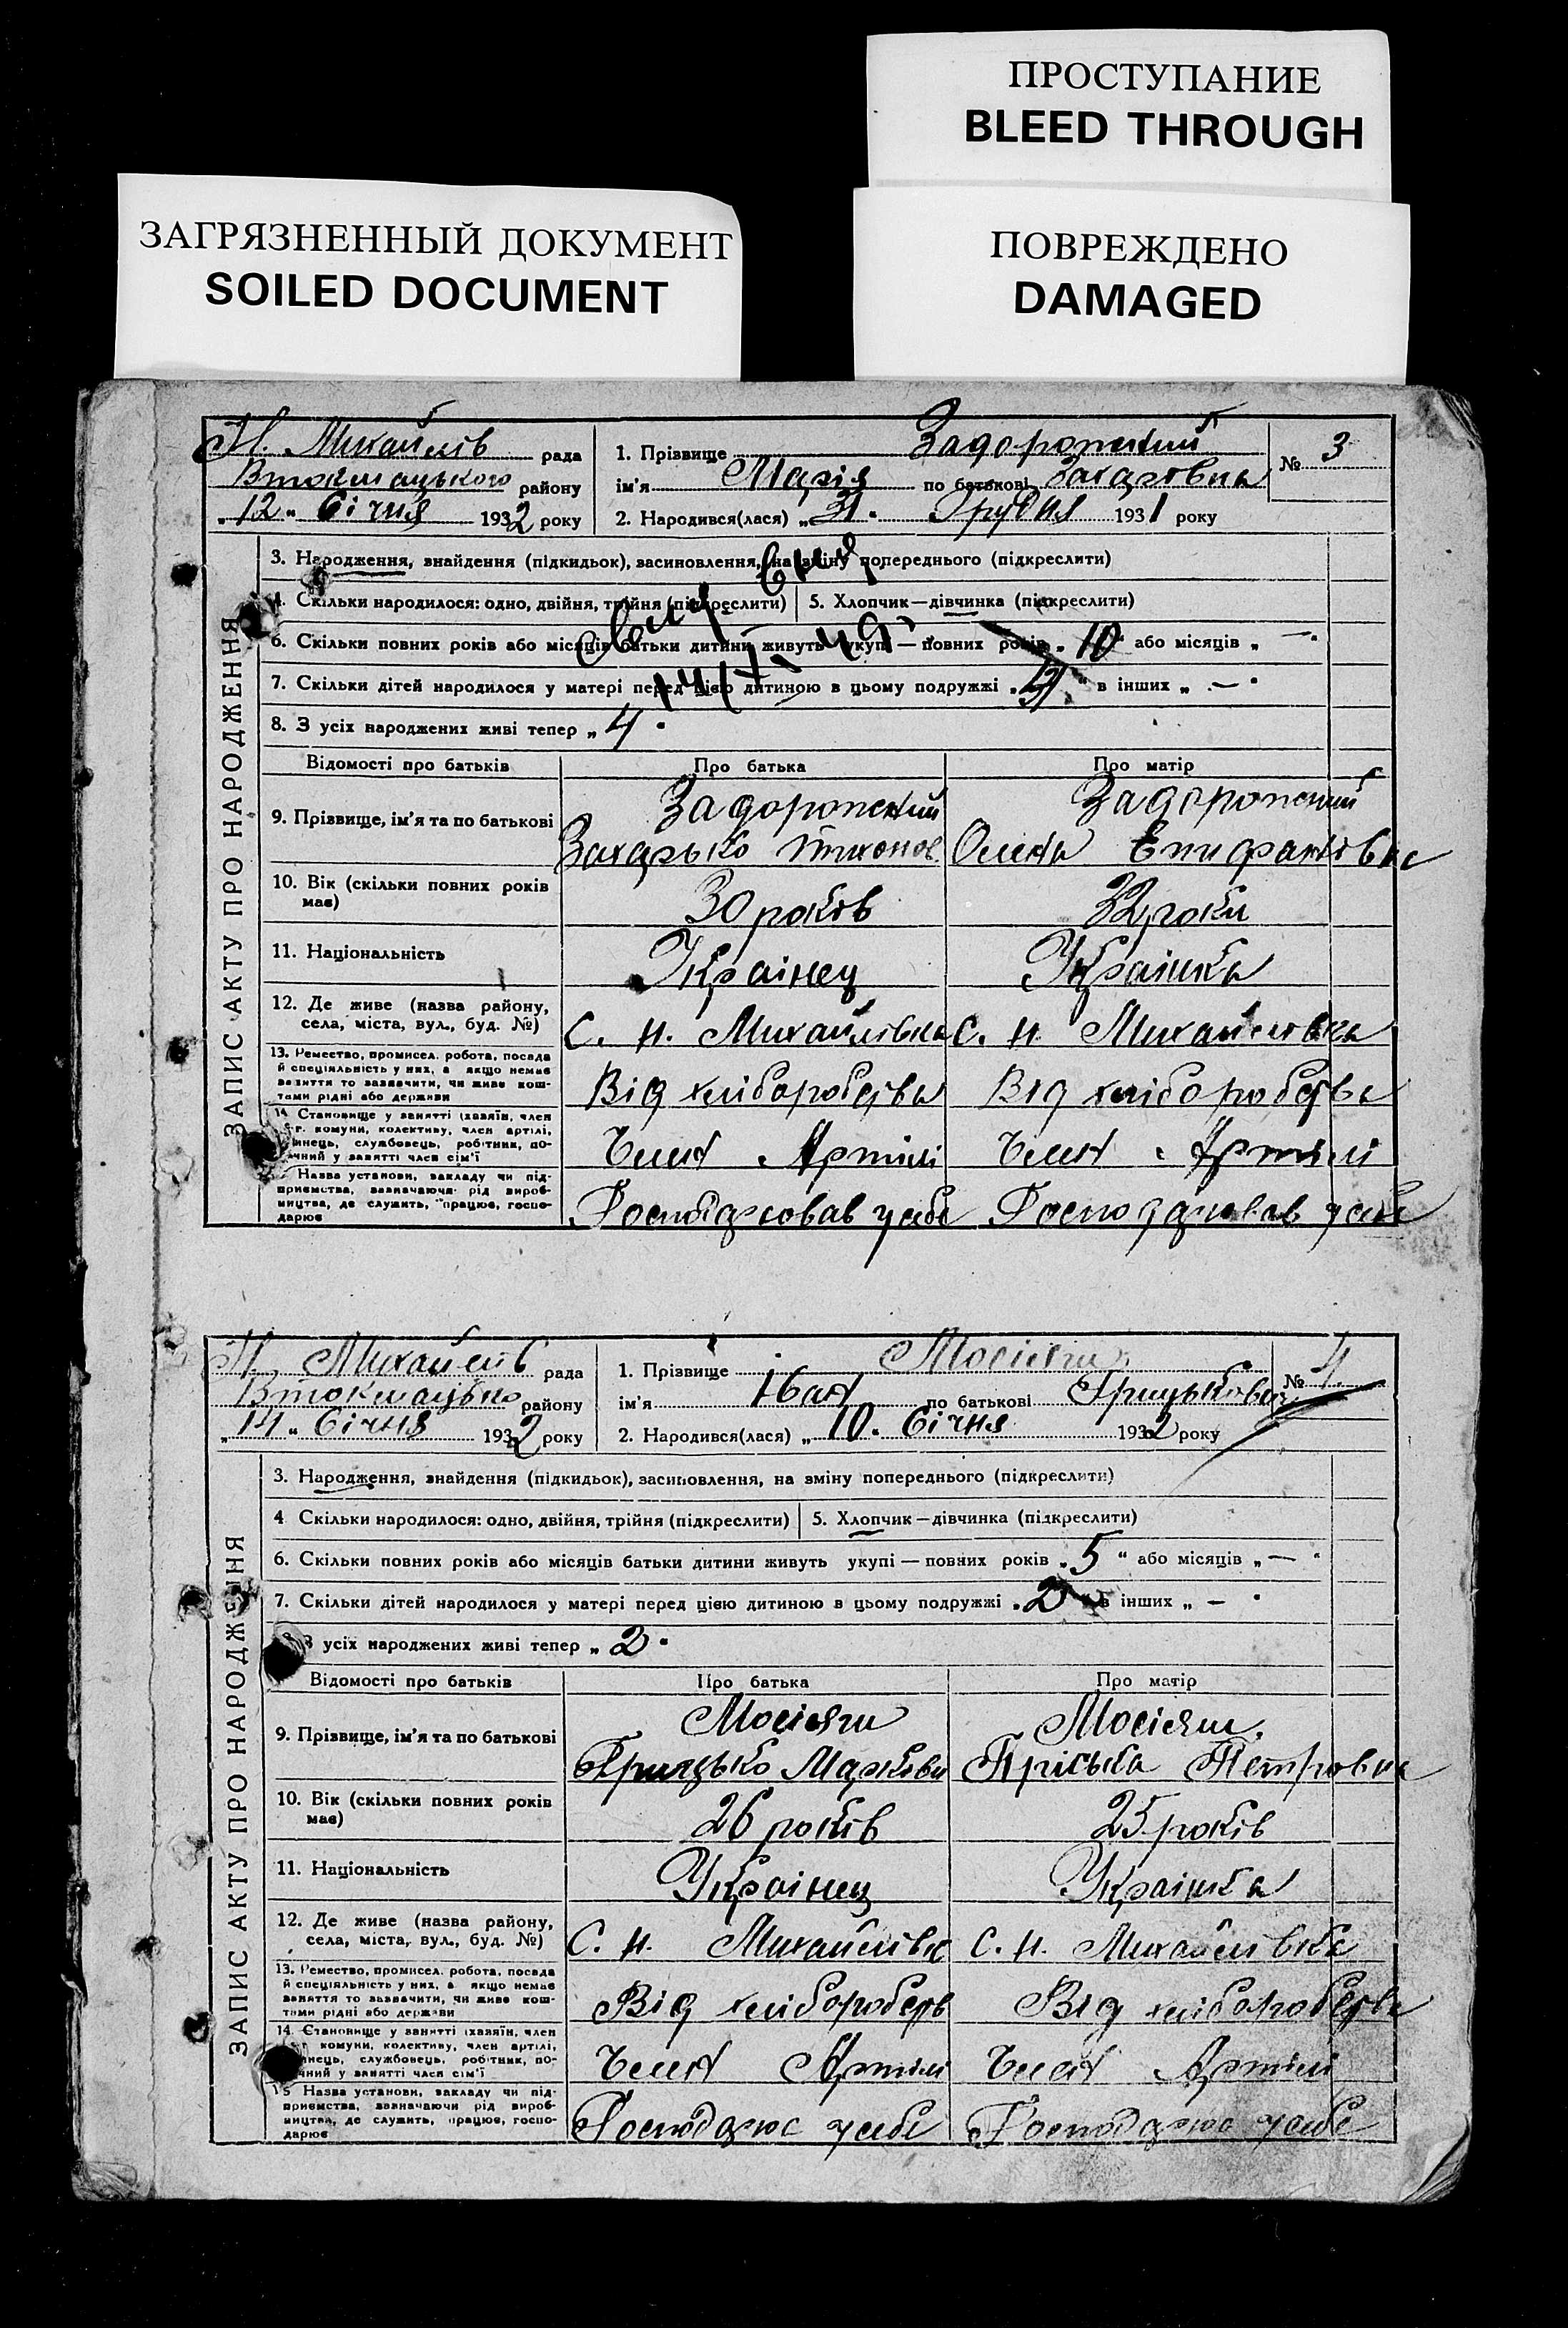 ПРОСТУПАНИЕ
BLEED THROUGH
ЗАГРЯЗНЕННЫЙ ДОКУМЕНТ
SOILED DOCUMENT
ПОВРЕЖДЕНО
DAMAGED
ЗАПИС АКТУ ПРО НАРОДЖЕННЯ
Н. Михайлів рада
Втокмацького району
„12“ Січня 1932 року
1. Прізвище Задорожний
ім'я Марія по батькові Захаровна
№ 3
2. Народився(лася) „31“ Грудня 1931 року
3. Народження, знайдення (підкидьок), засиновлення, на зміну попереднього (підкреслити)
4. Скільки народилося: одно, двійня, трійня (підкреслити) 5. Хлопчик—дівчинка (підкреслити)
6. Скільки повних років або місяців батьки дитини живуть укупі — повних років „10“ або місяців „—“
7. Скільки дітей народилося у матері перед цією дитиною в цьому подружжі в інших „—“
8. З усіх народжених живі тепер „4“
Відомості про батьків Про батька Про матір
9. Прізвище, ім'я та по батькові Задорожний Задорожний
Захарько Тихонов Олена Епифановна
10. Вік (скільки повних років має) 30 років 32 роки
11. Національність Українец Украінка
12. Де живе (назва району, села, міста, вул., буд. №) С. Н. Михайлівка С. Н. Михайлівка
13. Ремество, промисел. робота, посада й спеціяльність у них, а якщо немає заняття то зазначити, чи живе коштами рідні або держави Від хліборобства Від хліборобства
14. Становище у занятті (хазяїн, член с.-г. комуни, колективу, член артілі, службовець, робітник, помічний у занятті член сім'ї Член Артілі Член Артілі
Назва установи, закладу чи підприємства, зазначаючи рід виробництва, де служить, працює, господарює Господарював у себе Господарював у себе
ЗАПИС АКТУ ПРО НАРОДЖЕННЯ
Н. Михайлів рада
Втокмацько району
„14“ Січня 1932 року
1. Прізвище
ім'я Іван по батькові Грицькович
№ 4
2. Народився(лася) „10“ Січня 1932 року
3. Народження, знайдення (підкидьок), засиновлення, на зміну попереднього (підкреслити)
4 Скільки народилося: одно, двійня, трійня (підкреслити) 5. Хлопчик—дівчинка (підкреслити)
6. Скільки повних років або місяців батьки дитини живуть укупі — повних років „5“ або місяців „—“
7. Скільки дітей народилося у матері перед цією дитиною в цьому подружжі „2“ в інших „—“
8. З усіх народжених живі тепер „2“
Відомості про батьків Про батька Про матір
9. Прізвище, ім'я та по батькові
Грицько Маркови Пріська Петровна
10. Вік (скільки повних років має) 26 років 25 років
11. Національність Українец Украінка
12. Де живе (назва району, села, міста, вул., буд. №) С. Н. Михайлівк С. Н. Михайлівка
13. Ремество, промисел. робота, посада й спеціяльність у них, а якщо немає заняття то зазначити, чи живе коштами рідні або держави Від хліборобств Від хліборобства
14. Становище у занятті (хазяїн, член комуни, колективу, член артілі, службовець, робітник, помічний у занятті член сім'ї Член Артілі Член Артілі
15 Назва установи, закладу чи підприємства, зазначаючи рід виробництва, де служить, працює, господарює Господарює у себе Господарює у себе